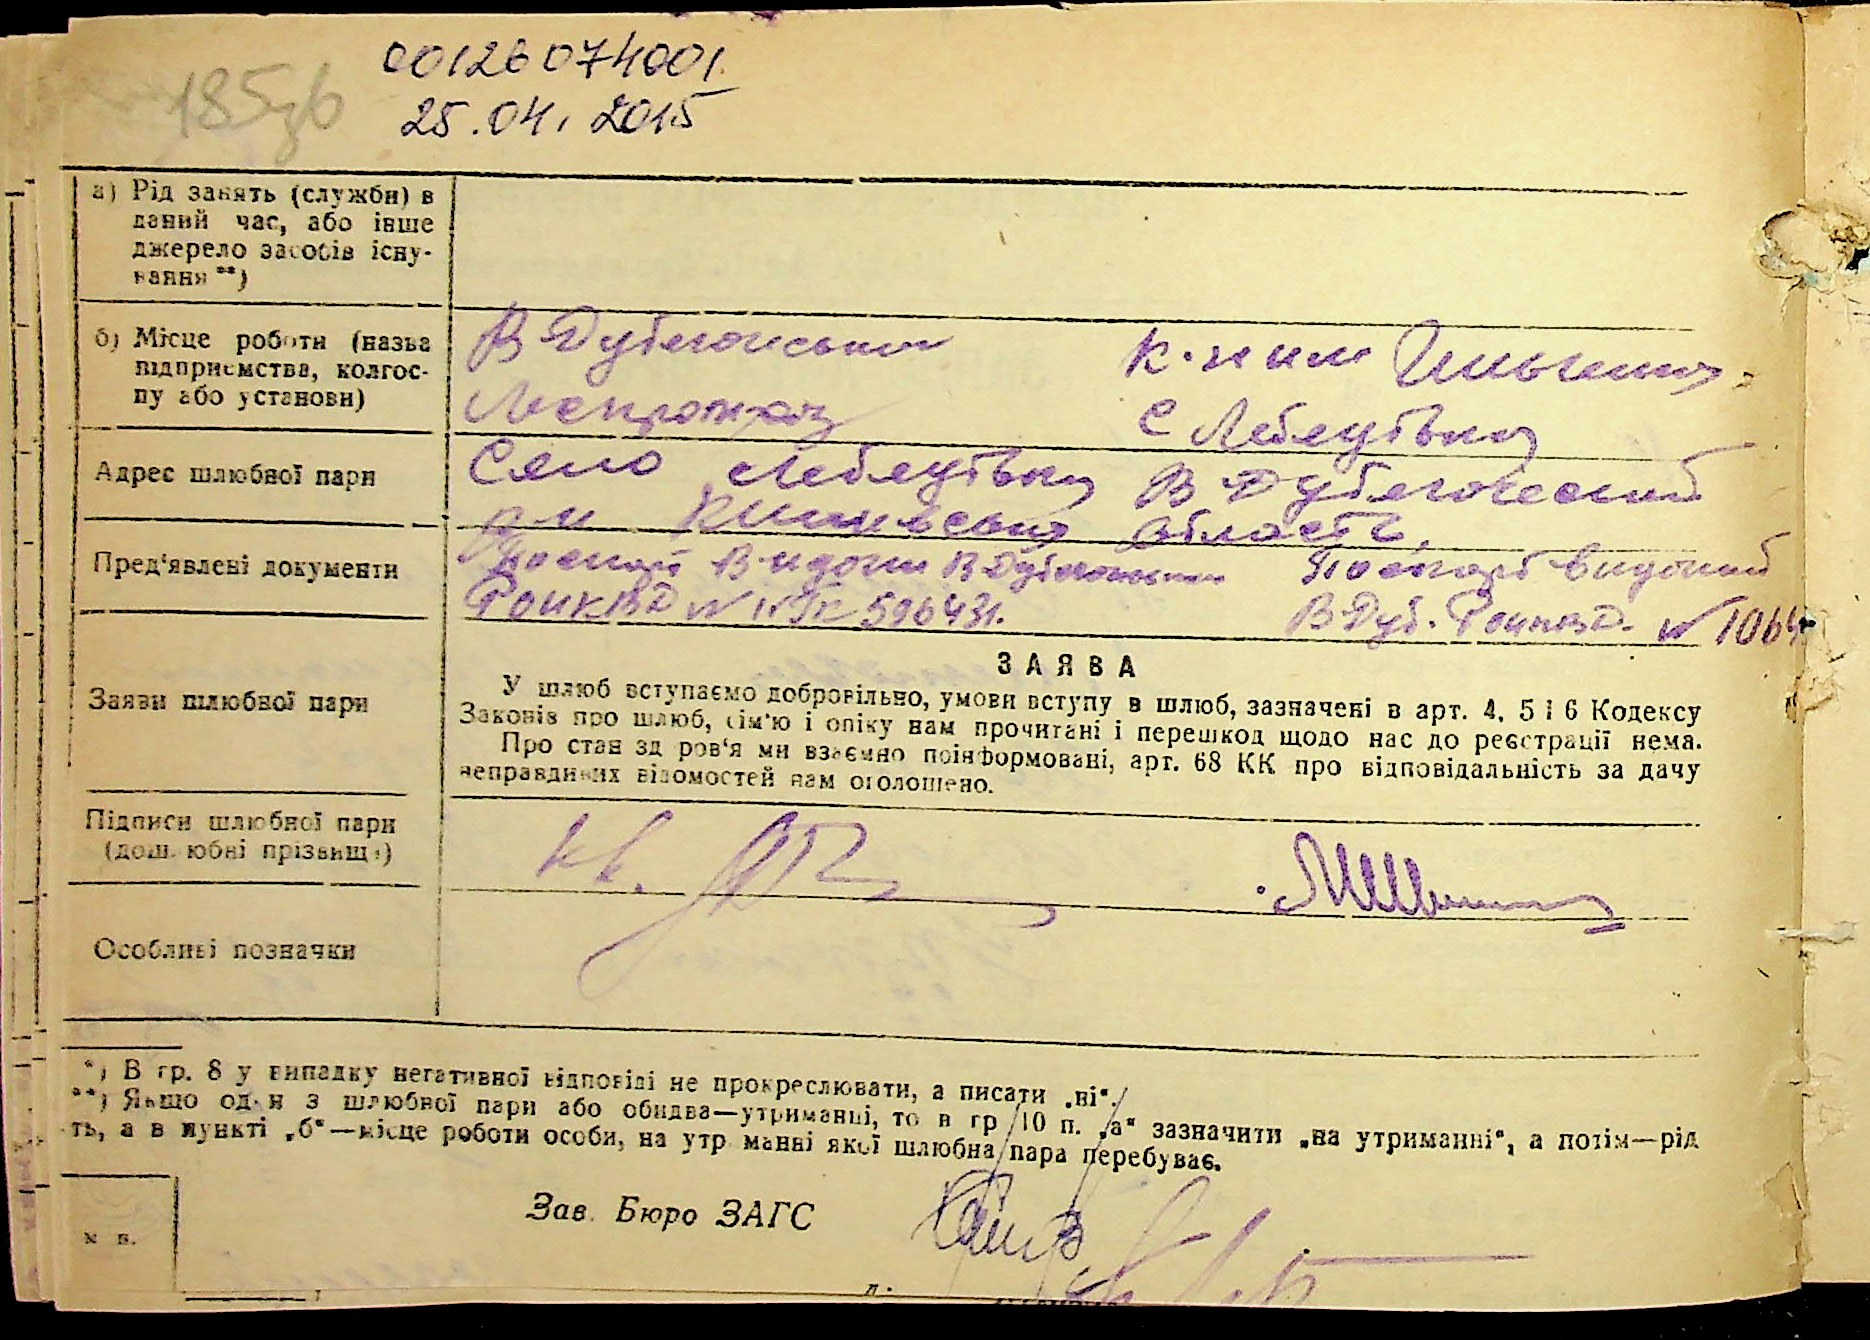 00126074001
25.04. 2015
185зв
а) Рід занять (служби) в
даний час, або інше
джерело засобів існу-
вання **)
б) Місце роботи (назва
підприємства, колгос-
пу або установи)
В Дубечанський
к-п им Ильича
с Лебедівка
Адрес шлюбної пари
Село Лебедівка В Дубечанский
р-н Київська область,
Пред'явлені документи
Паспорт видоний
В Дуб. №1064
№ 596431.
Заяви шлюбної пари
ЗАЯВА
У шлюб вступаємо добровільно, умови вступу в шлюб, зазначені в арт. 4, 5 і 6 Кодексу
Законів про шлюб, сім'ю і опіку нам прочитані і перешкод щодо нас до реєстрації нема.
Про стан здоров'я ми взаємно поінформовані, арт. 68 КК про відповідальність за дачу
неправдивих відомостей нам оголошено.
Підписи шлюбної пари
(дошлюбні прізвища)
Особливі позначки
*) В гр. 8 у випадку негативної відповіді не прокреслювати, а писати „ні“.
**) Якщо один з шлюбної пари або обидва—утриманці, то в гр 10 п. „а“ зазначити „на утриманні“, а потім—рід
ть, а в пункті „б“—місце роботи особи, на утриманні якої шлюбна пара перебуває.
Зав. Бюро ЗАГС
м п.